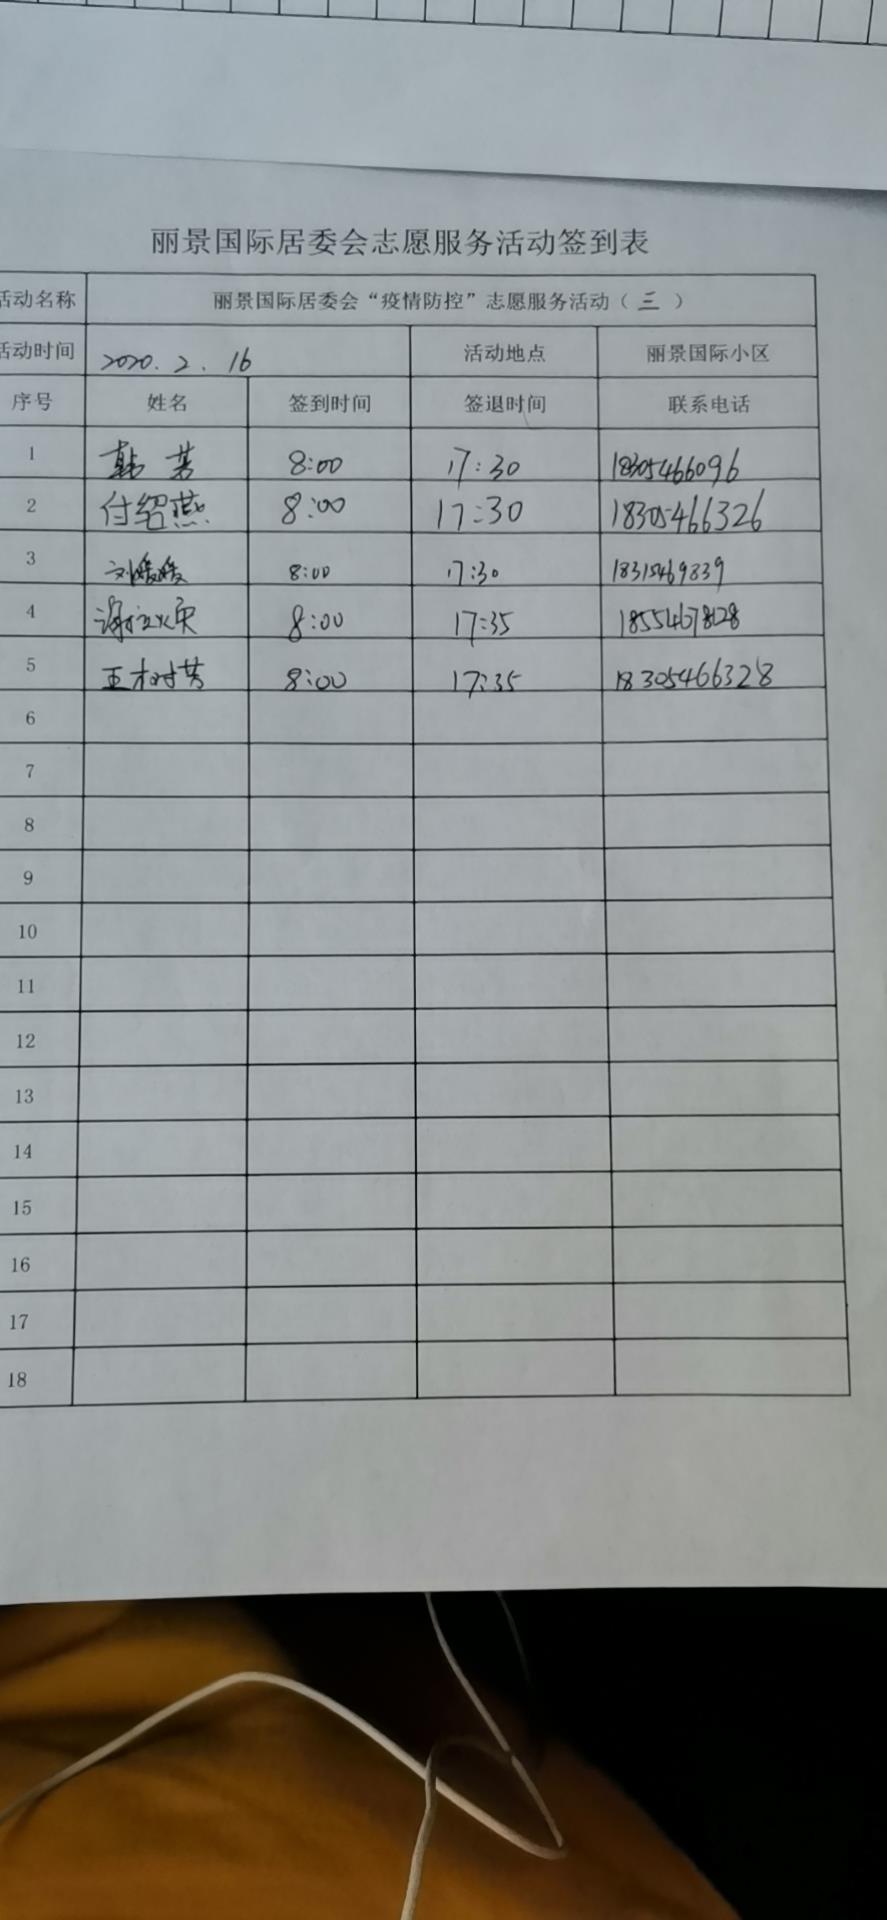 丽景国际居委会志愿服务活动签到表
活动名称 丽景国际居委会“疫情防控”志愿服务活动（三）
活动时间 2020.2.16 活动地点 丽景国际小区
序号 姓名 签到时间 签退时间 联系电话
1 韩 8:00 17:30 18305466096
2 付绍燕 8:00 17:30 18305466326
3 刘媛媛 8:00 17:30 18315469839
4 谢 8:00 17:35
5 王树芳 8:00 17:35 18305466328
6
7
8
9
10
11
12
13
14
15
16
17
18